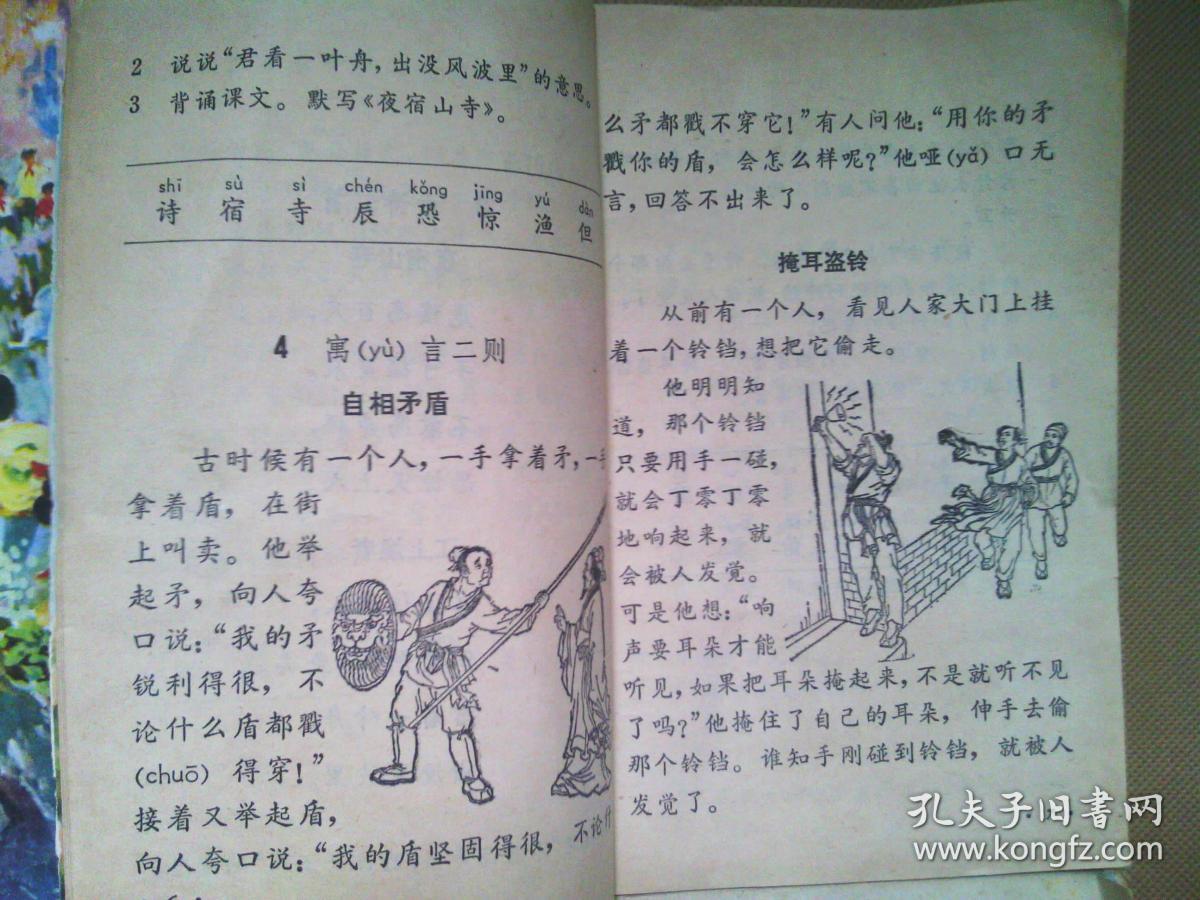 2 说说“君看一叶舟，出没风波里”的意思。
3 背诵课文。默写《夜宿山寺》。
shī sù sì chén kǒng jīng yú dàn
诗 宿 寺 辰 恐 惊 渔 但
4 寓(yù)言二则
自相矛盾
古时候有一个人，一手拿着矛，一手
拿着盾，在街
上叫卖。他举
起矛，向人夸
口说：“我的矛
锐利得很，不
论什么盾都戳
(chuō)得穿！”
接着又举起盾，
向人夸口说：“我的盾坚固得很，不论什
么矛都戳不穿它！”有人问他：“用你的矛
戳你的盾，会怎么样呢？”他哑(yǎ)口无
言，回答不出来了。
掩耳盗铃
从前有一个人，看见人家大门上挂
着一个铃铛，想把它偷走。
他明明知
道，那个铃铛
只要用手一碰，
就会丁零丁零
地响起来，就
会被人发觉。
可是他想：“响
声要耳朵才能
听见，如果把耳朵掩起来，不是就听不见
了吗？”他掩住了自己的耳朵，伸手去偷
那个铃铛。谁知手刚碰到铃铛，就被人
发觉了。
孔夫子旧书网
www.kongfz.com